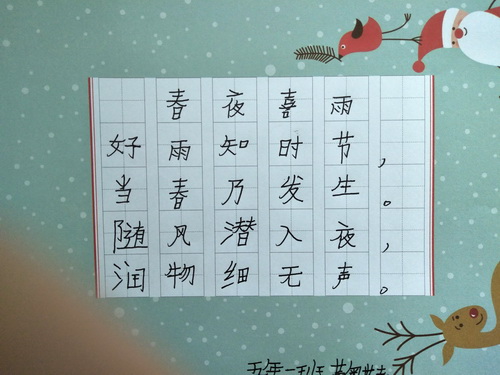 春夜喜雨
好雨知时节，
当春乃发生。
随风潜入夜，
润物细无声。
五年一班